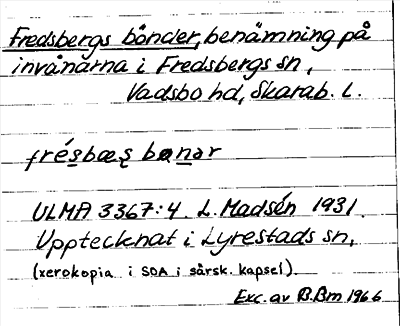 Fredsbergs bönder, benämning på
invånarna i Fredsbergs sn,
Vadsbo hd, Skarab. l.
frésbæs bønər
ULMA 3367:4. L. Madsén 1931.
Upptecknat i Lyrestads sn,
(xerokopia i SOA i särsk. kapsel).
Exc. av B.Bm 1966